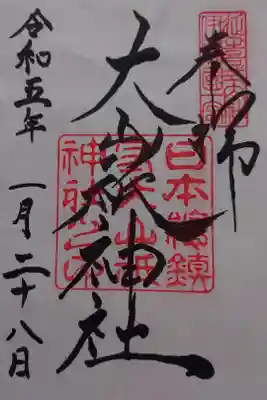 奉拝
大山祇神社
日本總鎮
守大山祇
神社之印
令和五年
一月二十八日